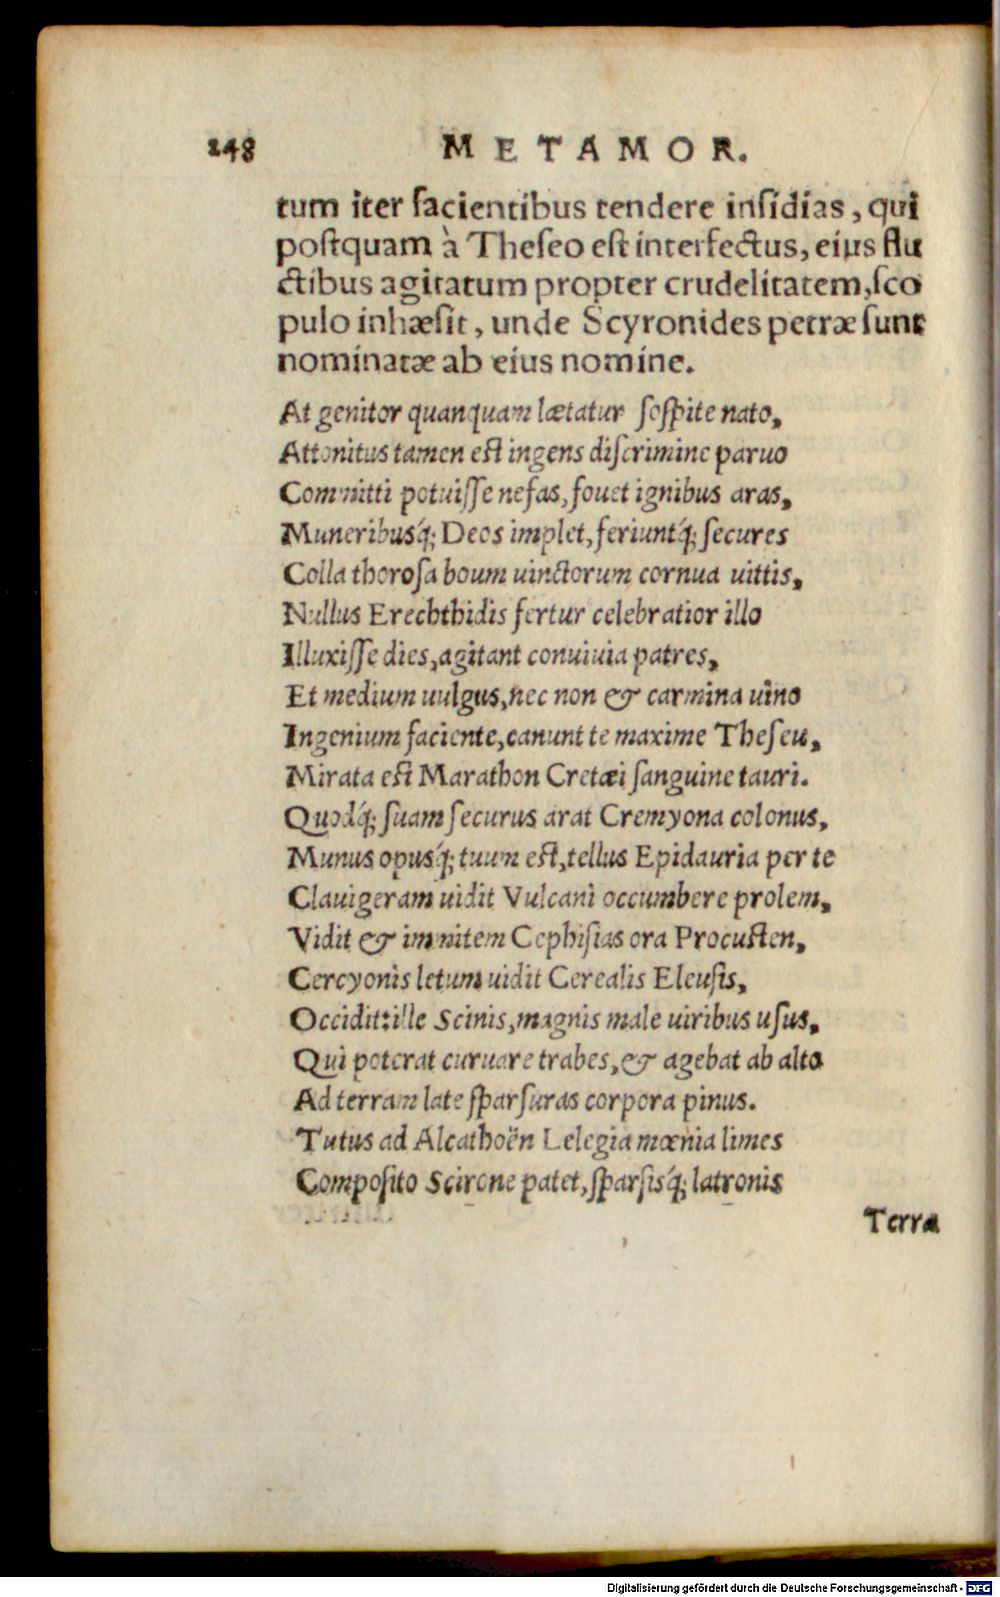 248 METAMOR.
tum iter facientibus tendere insidias, qui
postquam à Theseo est interfectus, eius flu
ctibus agitatum propter crudelitatem, sco
pulo inhæsit, unde Scyronides petræ sunt
nominatæ ab eius nomine.
At genitor quanquam lætatur sospite nato,
Attonitus tamen est ingens discrimine paruo
Committi potuisse nefas, fouet ignibus aras,
Muneribusq́; Deos implet, feriuntq́; secures
Colla thorosa boum uinctorum cornua uittis,
Nullus Erechthidis fertur celebratior illo
Illuxisse dies, agitant conuiuia patres,
Et medium uulgus, nec non & carmina uino
Ingenium faciente, canunt te maxime Theseu,
Mirata est Marathon Cretæi sanguine tauri.
Quodq́; suam securus arat Cremyona colonus,
Munus opusq́; tuum est, tellus Epidauria per te
Clauigeram uidit Vulcani occumbere prolem,
Vidit & immitem Cephisias ora Procusten,
Cercyonis letum uidit Cerealis Eleusis,
Occidit: ille Scinis, magnis male uiribus usus,
Qui poterat curuare trabes, & agebat ab alto
Ad terram late sparsuras corpora pinus.
Tutus ad Alcathoën Lelegia mœnia limes
Composito Scirone patet, sparsisq́; latronis
Terra
Digitalisierung gefördert durch die Deutsche Forschungsgemeinschaft - DFG